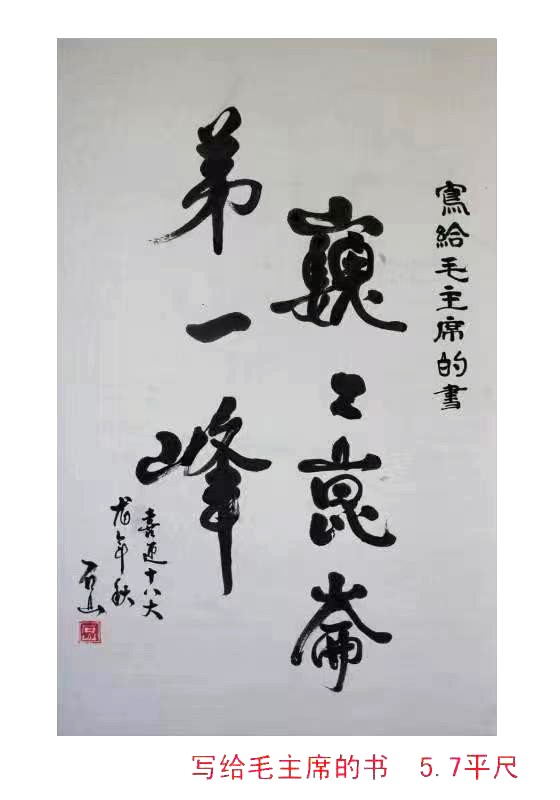 寫給毛主席的書
巍〻崑崙
第一峰
喜迎十八大
龍年秋
石山
写给毛主席的书 5.7平尺